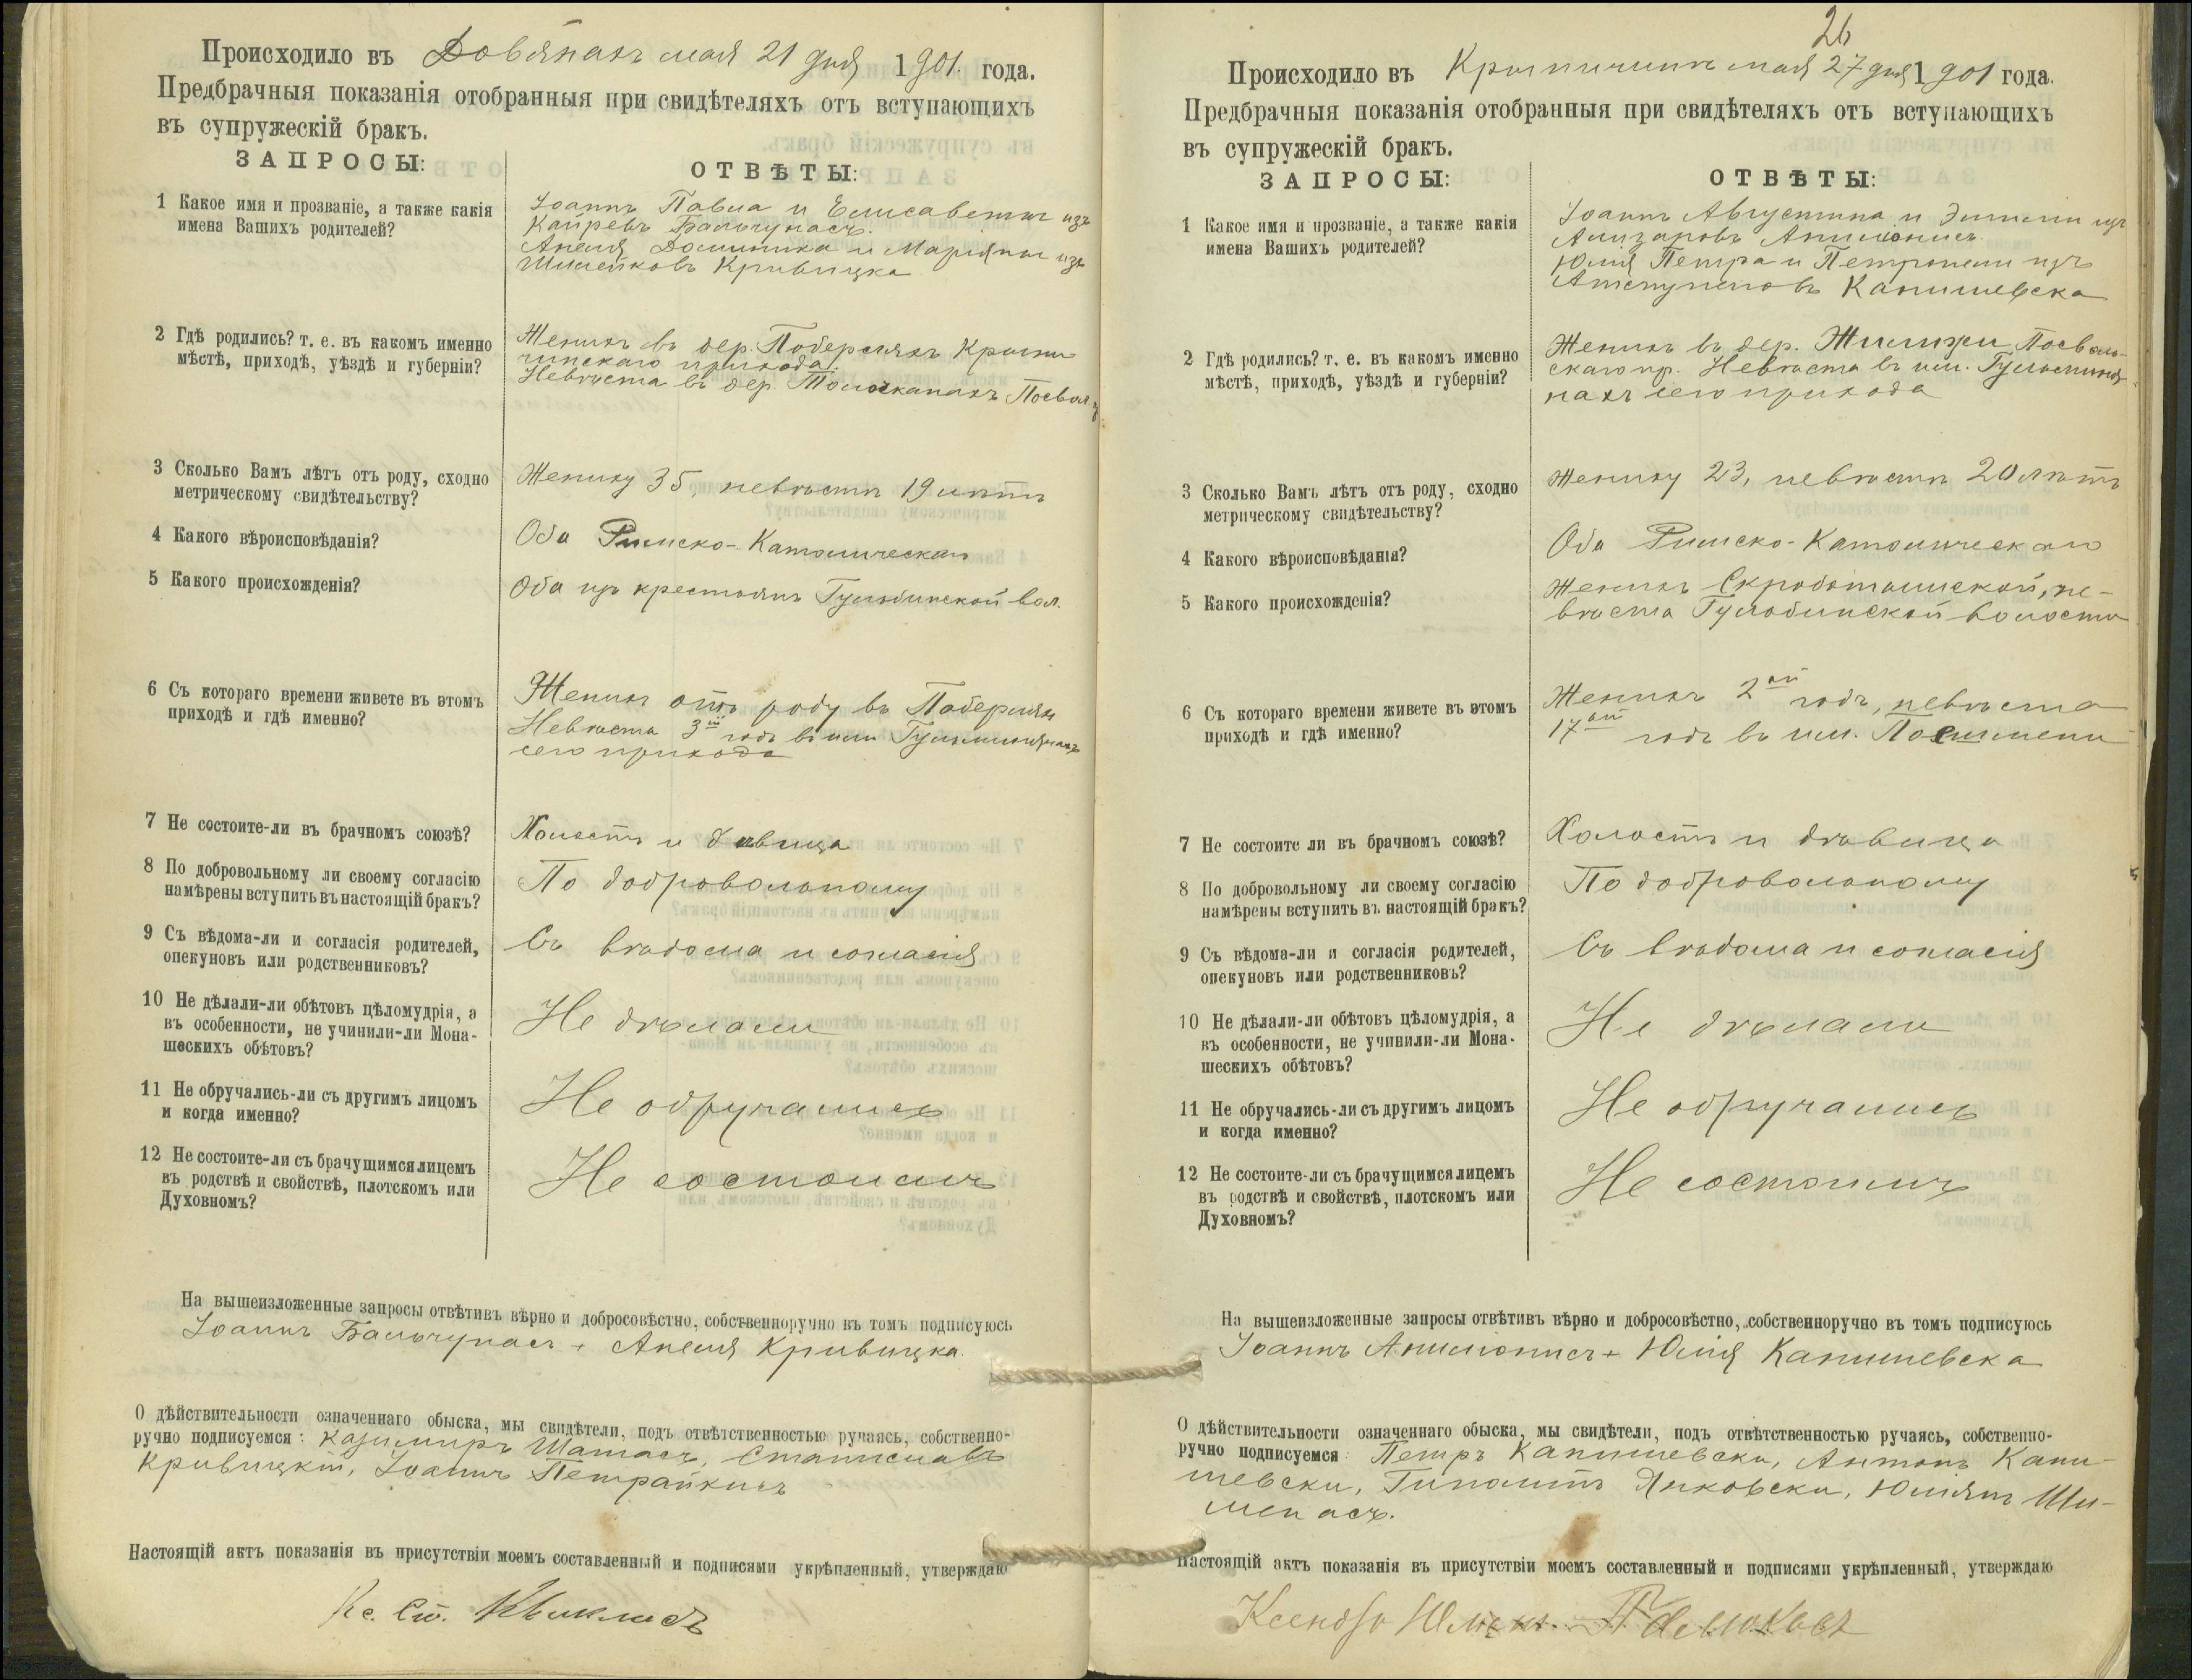 Происходило въ Довянахъ мая 21 дня 1901 года.
Предбрачныя показанія отобранныя при свидѣтеляхъ отъ вступающихъ
въ супружескій бракъ.
ЗАПРОСЫ:
ОТВѢТЫ:
1 Какое имя и прозваніе, а также какія
имена Вашихъ родителей?
Іоаннъ Павла и Елисаветы изъ
Кайревъ Бальчунасъ.
Анеля Доминика и Маріянны изъ
Шилейковъ Кривицка
2 Гдѣ родились? т. е. въ какомъ именно
мѣстѣ, приходѣ, уѣздѣ и губерніи?
Женихъ въ дер. Побержляхъ Крыни
чинскаго прихода.
Невѣста въ дер. Толочканахъ Посвол.
3 Сколько Вамъ лѣтъ отъ роду, сходно
метрическому свидѣтельству?
Жениху 35, невѣстѣ 19 лѣтъ
4 Какого вѣроисповѣданія?
Оба Римско-Католическаго
5 Какого происхожденія?
Оба изъ крестьянъ Гулюбинской вол.
6 Съ котораго времени живете въ этомъ
приходѣ и гдѣ именно?
Женихъ отъ роду въ
Невѣста 3й годъ въ им.
сего прихода
7 Не состоите-ли въ брачномъ союзѣ?
Холостъ и дѣвица
8 По добровольному ли своему согласію
намѣрены вступить въ настоящій бракъ?
По добровольному
9 Съ вѣдома-ли и согласія родителей,
опекуновъ или родственниковъ?
Съ вѣдома и согласія
10 Не дѣлали-ли обѣтовъ цѣломудрія, а
въ особенности, не учинили-ли Мона-
шескихъ обѣтовъ?
Не дѣлали
11 Не обручались-ли съ другимъ лицомъ
и когда именно?
Не обручались
12 Не состоите-ли съ брачущимся лицемъ
въ родствѣ и свойствѣ, плотскомъ или
Духовномъ?
Не состоимъ
На вышеизложенные запросы отвѣтивъ вѣрно и добросовѣстно, собственноручно въ томъ подписуюсь
Іоаннъ Бальчунасъ + Анеля Кривицка.
О дѣйствительности означеннаго обыска, мы свидѣтели, подъ отвѣтственностью ручаясь, собственно-
ручно подписуемся: Казимиръ Шатасъ, Станиславъ
Кривицкій, Іоаннъ Петрайкисъ
Настоящій актъ показанія въ присутствіи моемъ составленный и подписями укрѣпленный, утверждаю
Кс. Ст.
26
Происходило въ Крыничинѣ мая 27 дня 1901 года.
Предбрачныя показанія отобранныя при свидѣтеляхъ отъ вступающихъ
въ супружескій бракъ.
ЗАПРОСЫ:
ОТВѢТЫ:
1 Какое имя и прозваніе, а также какія
имена Вашихъ родителей?
Іоаннъ Августина и Эмиліи изъ
Ализаровъ Анилионисъ.
Юлія Петра и Петронели изъ
Капишевска
2 Гдѣ родились? т. е. въ какомъ именно
мѣстѣ, приходѣ, уѣздѣ и губерніи?
Женихъ въ дер. Посволь-
скаго пр. Невѣста въ им.
нахъ сего прихода
3 Сколько Вамъ лѣтъ отъ роду, сходно
метрическому свидѣтельству?
Жениху 23, невѣстѣ 20 лѣтъ
4 Какого вѣроисповѣданія?
Оба Римско-Католическаго
5 Какого происхожденія?
Женихъ Скроботишской, не-
вѣста Гулюбинской волости
6 Съ котораго времени живете въ этомъ
приходѣ и гдѣ именно?
Женихъ 2ой годъ, невѣста
17ый годъ въ им.
7 Не состоите ли въ брачномъ союзѣ?
Холостъ и дѣвица
8 По добровольному ли своему согласію
намѣрены вступить въ настоящій бракъ?
По добровольному
9 Съ вѣдома-ли и согласія родителей,
опекуновъ или родственниковъ?
Съ вѣдома и согласія
10 Не дѣлали-ли обѣтовъ цѣломудрія, а
въ особенности, не учинили-ли Мона-
шескихъ обѣтовъ?
Не дѣлали
11 Не обручались-ли съ другимъ лицомъ
и когда именно?
Не обручались
12 Не состоите-ли съ брачущимся лицемъ
въ родствѣ и свойствѣ, плотскомъ или
Духовномъ?
Не состоимъ
На вышеизложенные запросы отвѣтивъ вѣрно и добросовѣстно, собственноручно въ томъ подписуюсь
Іоаннъ Анилионисъ + Юлія Капишевска
О дѣйствительности означеннаго обыска, мы свидѣтели, подъ отвѣтственностью ручаясь, собственно-
ручно подписуемся Петръ Капишевски, Антонъ Капи-
шевски, Гиполитъ Янковски, Юліянъ Ши-
менасъ.
Настоящій актъ показанія въ присутствіи моемъ составленный и подписями укрѣпленный, утверждаю
Ксендзъ